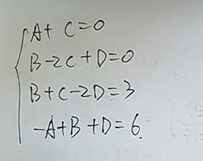 A+ C=0
B-2C+D=0
B+C-2D=3
-A+B+D=6.